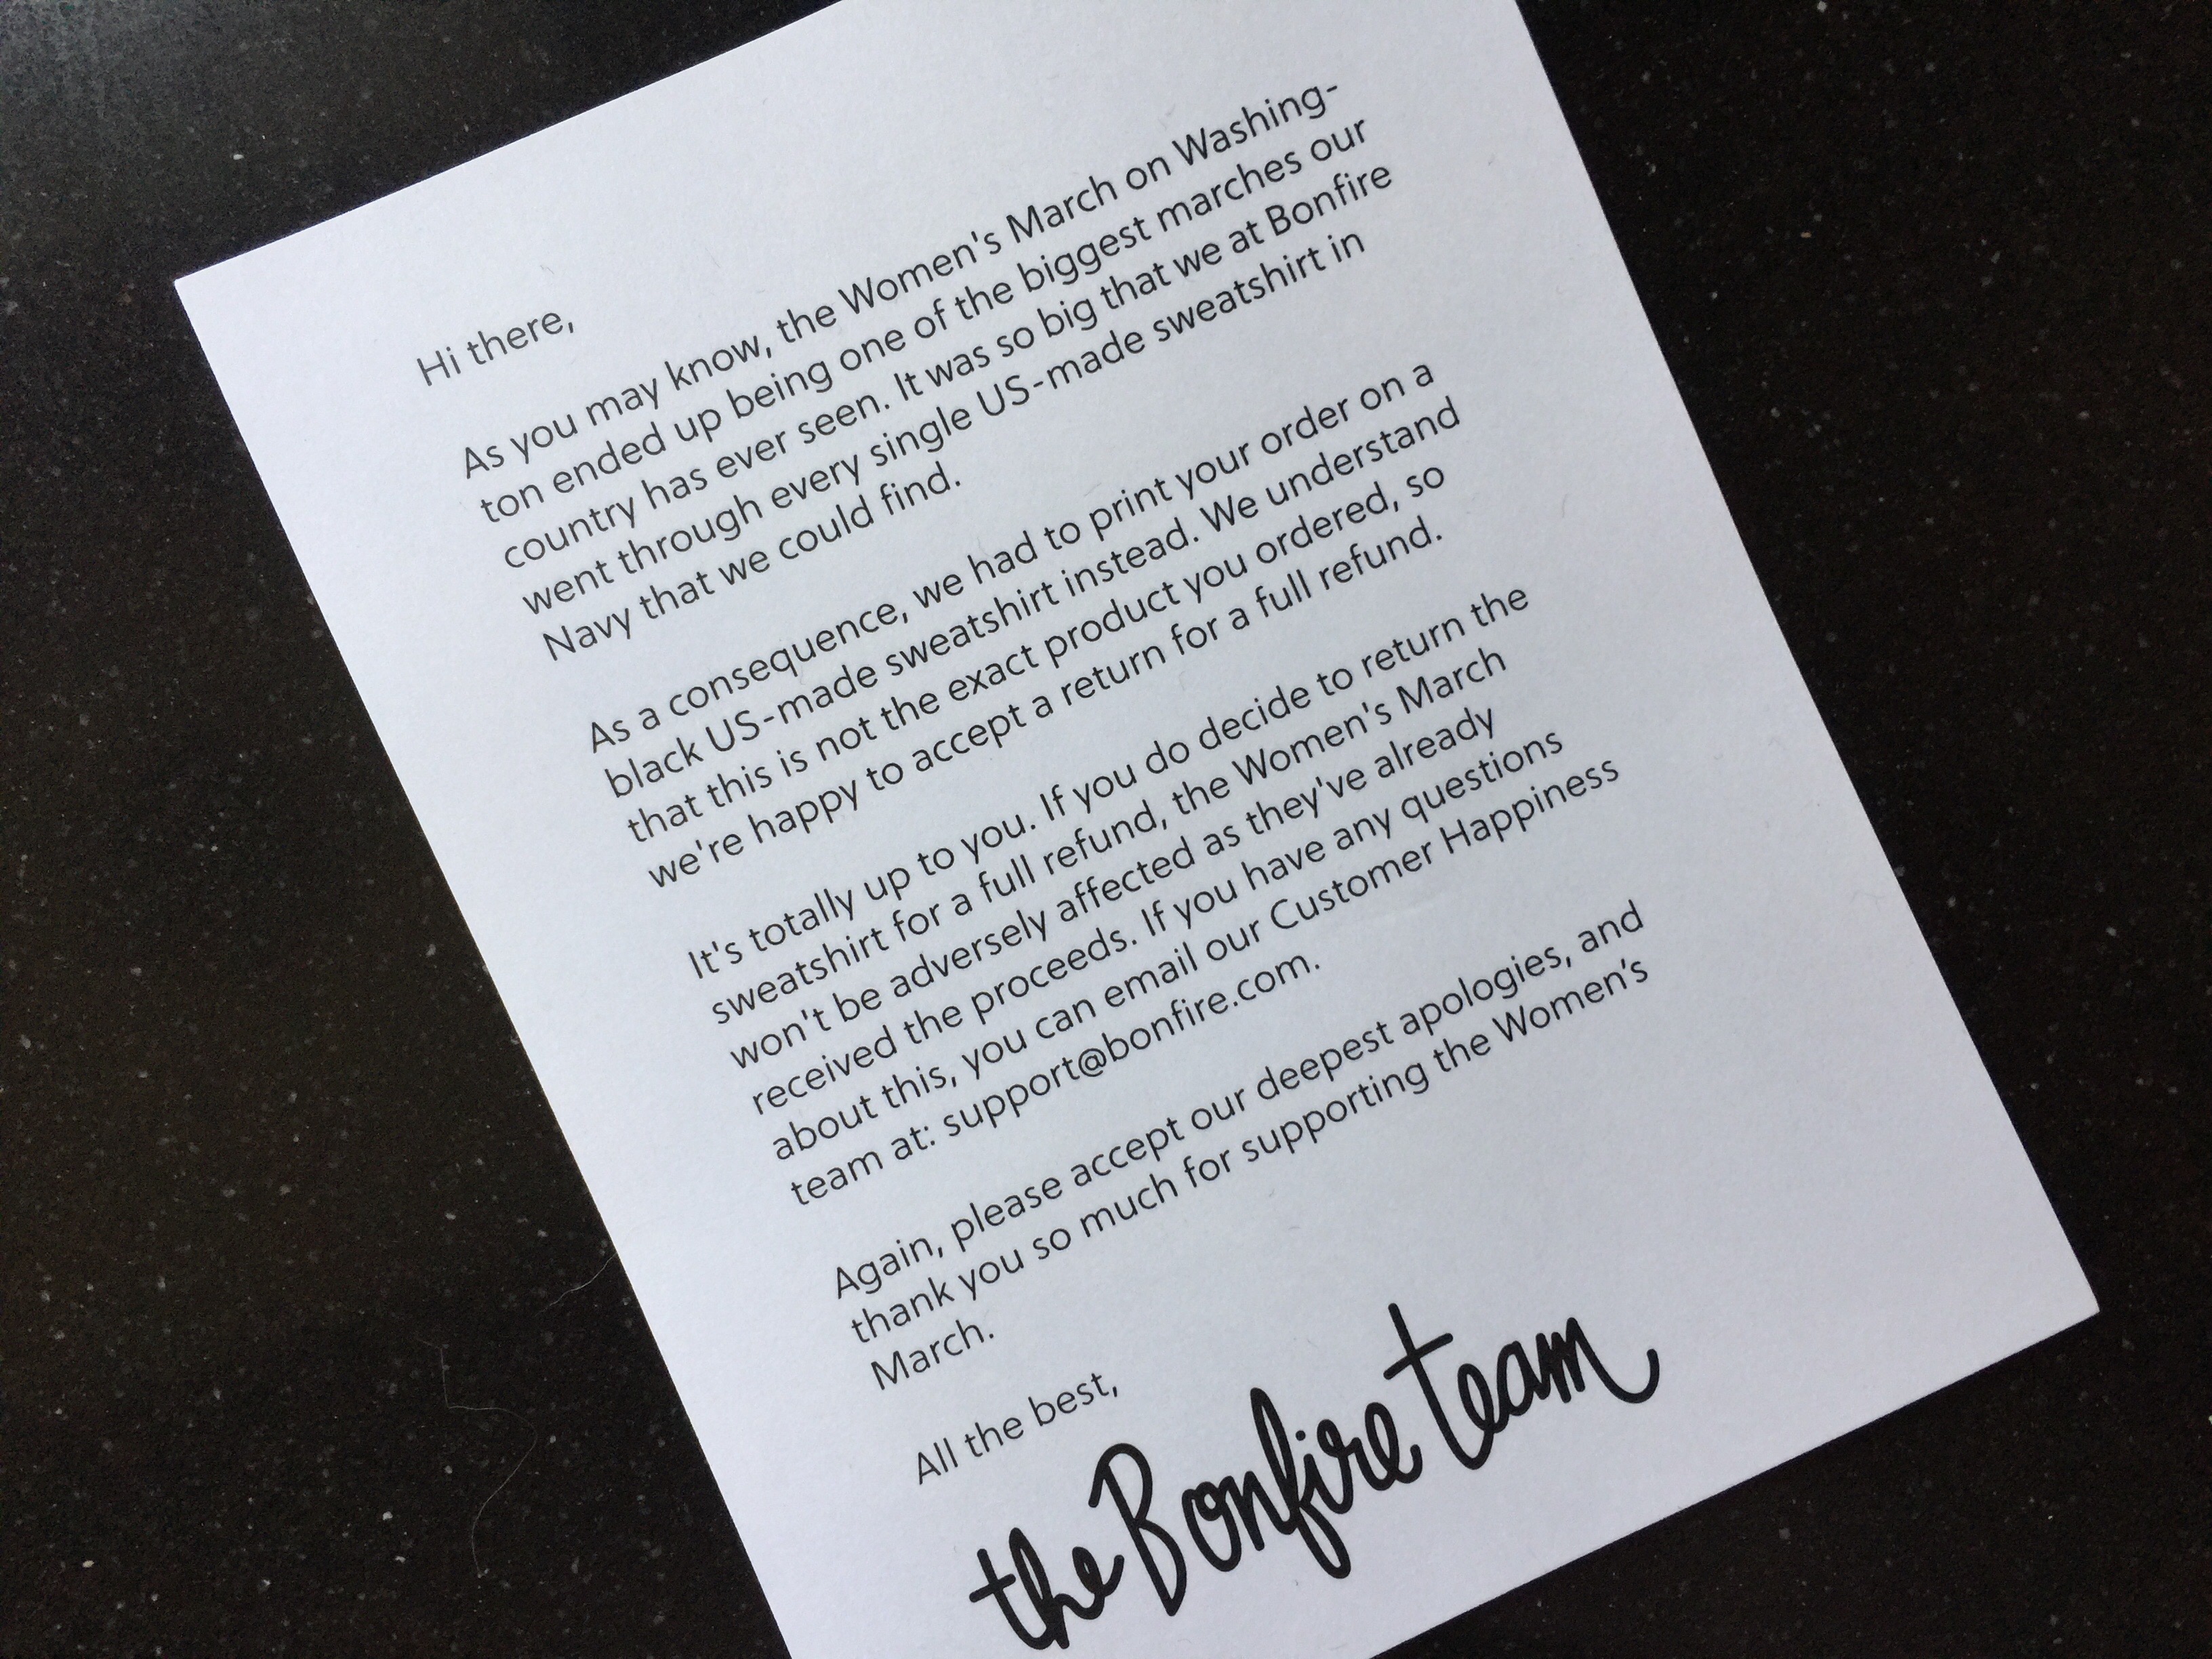 Hi there,
As you may know, the Women's March on Washing-
ton ended up being one of the biggest marches our
country has ever seen. It was so big that we at Bonfire
went through every single US-made sweatshirt in
Navy that we could find.
As a consequence, we had to print your order on a
black US-made sweatshirt instead. We understand
that this is not the exact product you ordered, so
we're happy to accept a return for a full refund.
It's totally up to you. If you do decide to return the
sweatshirt for a full refund, the Women's March
won't be adversely affected as they've already
received the proceeds. If you have any questions
about this, you can email our Customer Happiness
team at: support@bonfire.com.
Again, please accept our deepest apologies, and
thank you so much for supporting the Women's
March.
All the best,
the Bonfire team